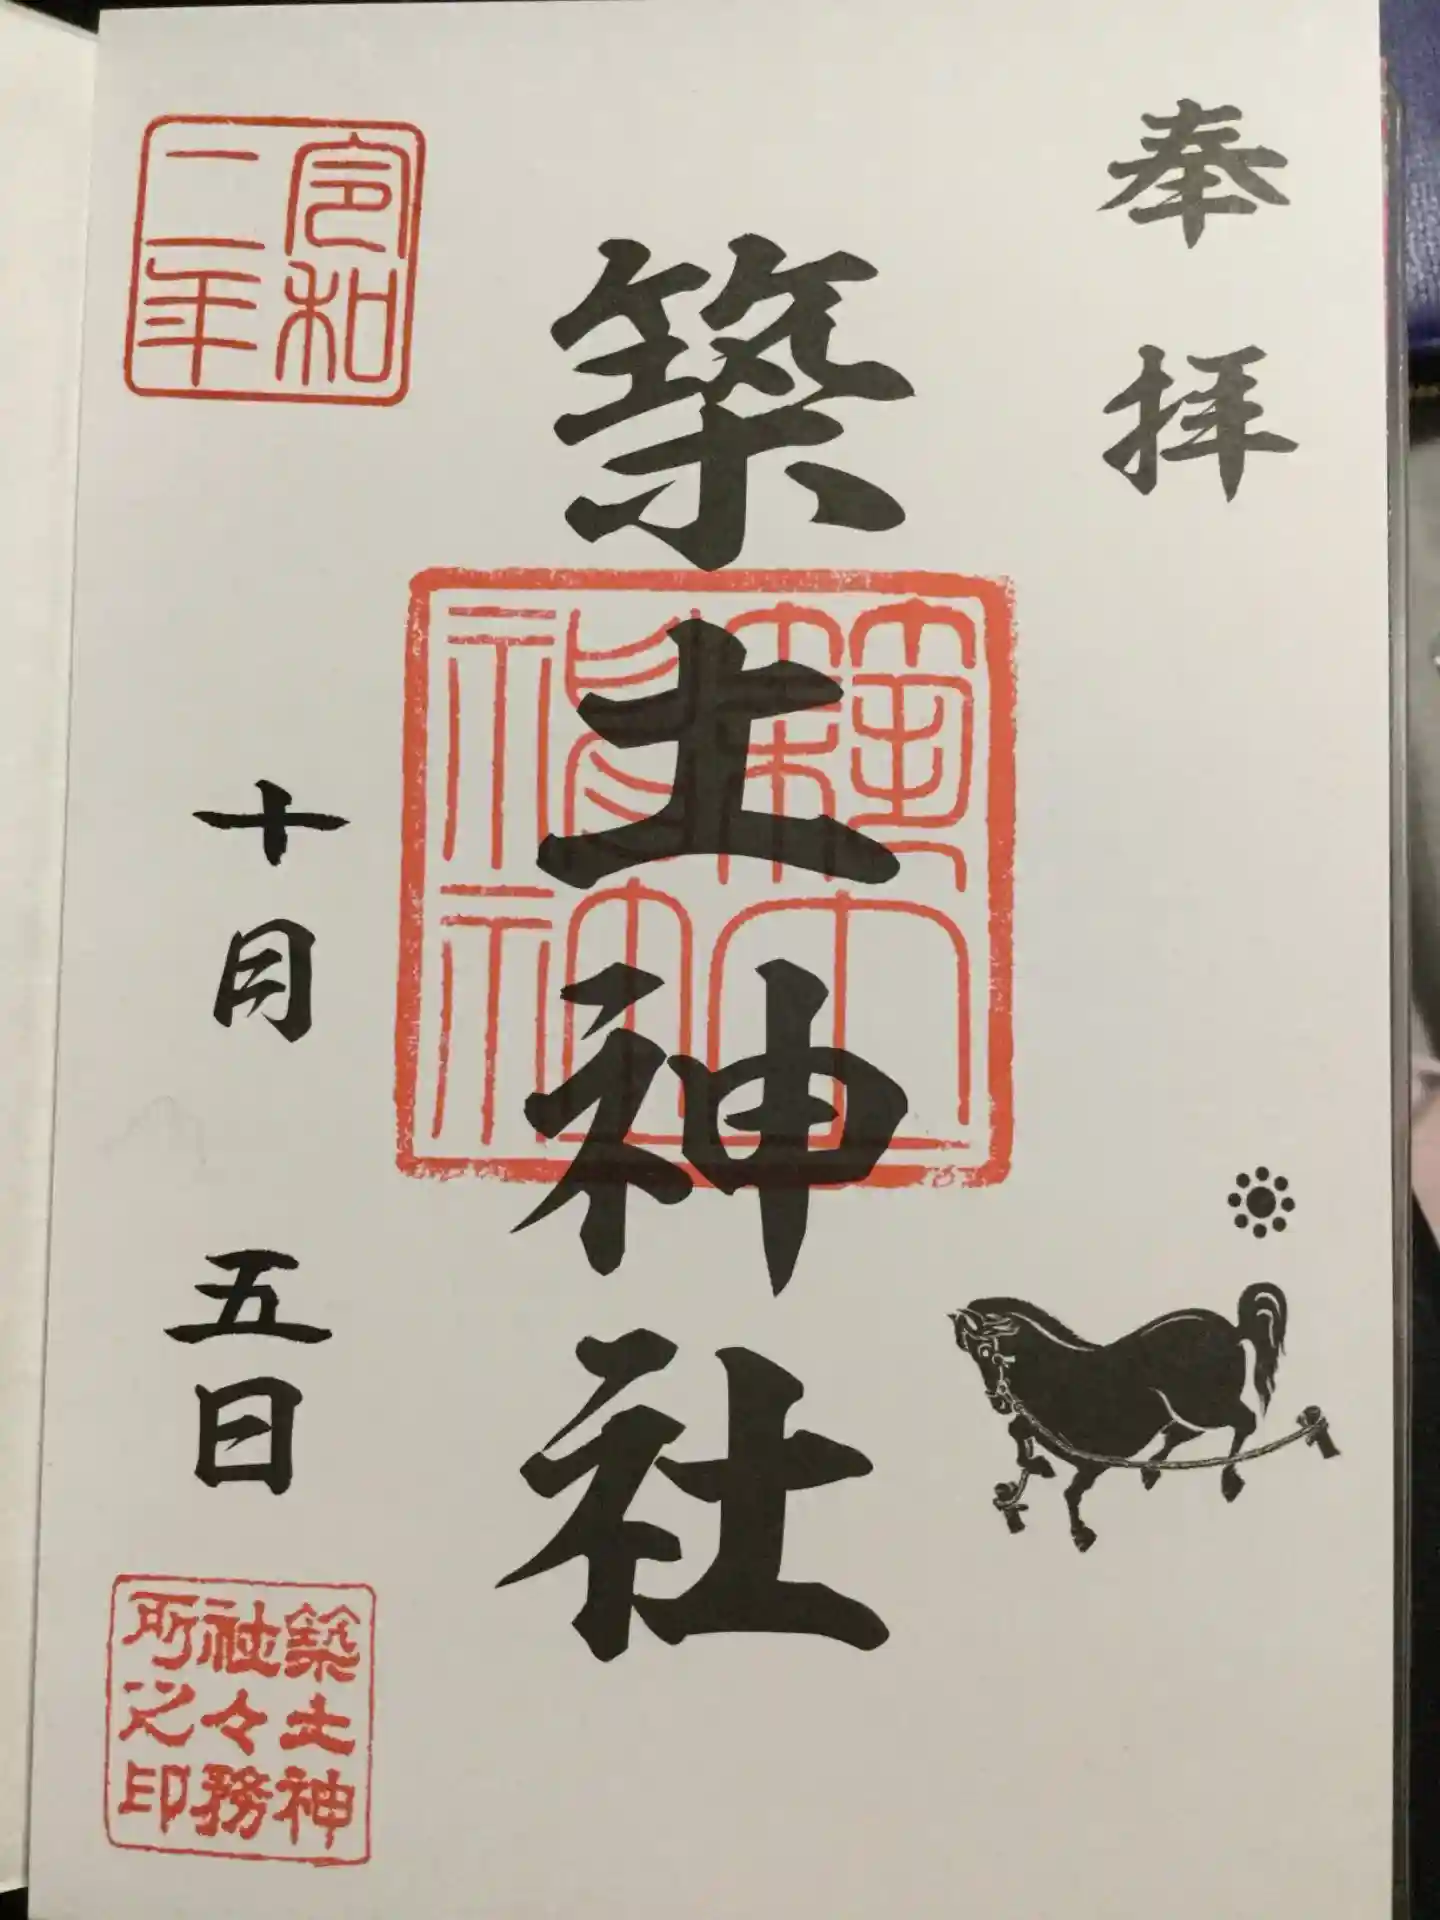 奉拝
築土神社
令和二年
十月五日
築土神
社々務
所之印